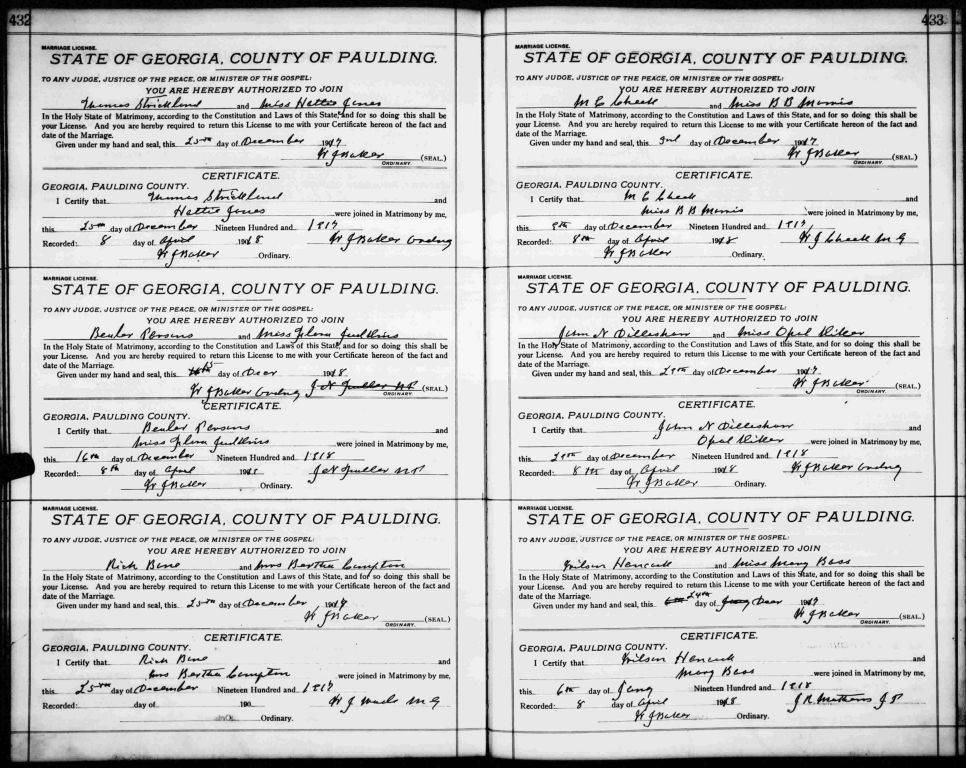 432
MARRIAGE LICENSE.
STATE OF GEORGIA, COUNTY OF PAULDING.
TO ANY JUDGE, JUSTICE OF THE PEACE, OR MINISTER OF THE GOSPEL:
YOU ARE HEREBY AUTHORIZED TO JOIN
Thomas Strickland and Miss Hattie Jones
In the Holy State of Matrimony, according to the Constitution and Laws of this State, and for so doing this shall be
your License. And you are hereby required to return this License to me with your Certificate hereon of the fact and
date of the Marriage.
Given under my hand and seal, this 25th day of December 1917
W J Baker (SEAL.)
ORDINARY.
CERTIFICATE.
GEORGIA, PAULDING COUNTY.
I Certify that Thomas Strickland and
Hattie Jones were joined in Matrimony by me,
this 25th day of December Nineteen Hundred and 1917
Recorded: 8 day of April 1918 W J Baker Ordng
W J Baker Ordinary.
MARRIAGE LICENSE.
STATE OF GEORGIA, COUNTY OF PAULDING.
TO ANY JUDGE, JUSTICE OF THE PEACE, OR MINISTER OF THE GOSPEL:
YOU ARE HEREBY AUTHORIZED TO JOIN
Beuler Persons and Miss Flora Judkins
In the Holy State of Matrimony, according to the Constitution and Laws of this State, and for so doing this shall be
your License. And you are hereby required to return this License to me with your Certificate hereon of the fact and
date of the Marriage.
Given under my hand and seal, this 15 day of Decr 1918
W J Baker Ordng J N Fuller N P (SEAL.)
ORDINARY.
CERTIFICATE.
GEORGIA, PAULDING COUNTY.
I Certify that Beuler Persons and
Miss Flora Judkins were joined in Matrimony by me,
this 16th day of December Nineteen Hundred and 1918
Recorded: 8th day of April 1918 J N Fuller N P
W J Baker Ordinary.
MARRIAGE LICENSE.
STATE OF GEORGIA, COUNTY OF PAULDING.
TO ANY JUDGE, JUSTICE OF THE PEACE, OR MINISTER OF THE GOSPEL:
YOU ARE HEREBY AUTHORIZED TO JOIN
Rich Bone and Mrs Bertha Compton
In the Holy State of Matrimony, according to the Constitution and Laws of this State, and for so doing this shall be
your License. And you are hereby required to return this License to me with your Certificate hereon of the fact and
date of the Marriage.
Given under my hand and seal, this 25th day of December 1917
W J Baker (SEAL.)
ORDINARY.
CERTIFICATE.
GEORGIA, PAULDING COUNTY.
I Certify that Rich Bone and
Mrs Bertha Compton were joined in Matrimony by me,
this 25th day of December Nineteen Hundred and 1917
Recorded: day of 190 W J M G
433
MARRIAGE LICENSE.
STATE OF GEORGIA, COUNTY OF PAULDING.
TO ANY JUDGE, JUSTICE OF THE PEACE, OR MINISTER OF THE GOSPEL:
YOU ARE HEREBY AUTHORIZED TO JOIN
M C Cheek and Miss B B Morris
In the Holy State of Matrimony, according to the Constitution and Laws of this State, and for so doing this shall be
your License. And you are hereby required to return this License to me with your Certificate hereon of the fact and
date of the Marriage.
Given under my hand and seal, this 3rd day of December 1917
W J Baker (SEAL.)
ORDINARY.
CERTIFICATE.
GEORGIA, PAULDING COUNTY.
I Certify that M C Cheek and
Miss B B Morris were joined in Matrimony by me,
this 9th day of December Nineteen Hundred and 1917
Recorded: 8th day of April 1918 W J Cheek M G
W J Baker Ordinary.
MARRIAGE LICENSE.
STATE OF GEORGIA, COUNTY OF PAULDING.
TO ANY JUDGE, JUSTICE OF THE PEACE, OR MINISTER OF THE GOSPEL:
YOU ARE HEREBY AUTHORIZED TO JOIN
John N Dilleshaw and Miss Opal
In the Holy State of Matrimony, according to the Constitution and Laws of this State, and for so doing this shall be
your License. And you are hereby required to return this License to me with your Certificate hereon of the fact and
date of the Marriage.
Given under my hand and seal, this 29th day of December 1917
W J Baker (SEAL.)
ORDINARY.
CERTIFICATE.
GEORGIA, PAULDING COUNTY.
I Certify that John N Dilleshaw and
Opal were joined in Matrimony by me,
this 29th day of December Nineteen Hundred and 1918
Recorded: 8th day of April 1918 W J Baker Ordng
W J Baker Ordinary.
MARRIAGE LICENSE.
STATE OF GEORGIA, COUNTY OF PAULDING.
TO ANY JUDGE, JUSTICE OF THE PEACE, OR MINISTER OF THE GOSPEL:
YOU ARE HEREBY AUTHORIZED TO JOIN
Wilson Hencock and Miss Mary Bass
In the Holy State of Matrimony, according to the Constitution and Laws of this State, and for so doing this shall be
your License. And you are hereby required to return this License to me with your Certificate hereon of the fact and
date of the Marriage.
Given under my hand and seal, this 24th day of Decr 1917
W J Baker (SEAL.)
ORDINARY.
CERTIFICATE.
GEORGIA, PAULDING COUNTY.
I Certify that Wilson Hencock and
Mary Bass were joined in Matrimony by me,
this 6th day of Jany Nineteen Hundred and 1918
Recorded: 8 day of April 1918 J R Mathews J P
W J Baker Ordinary.